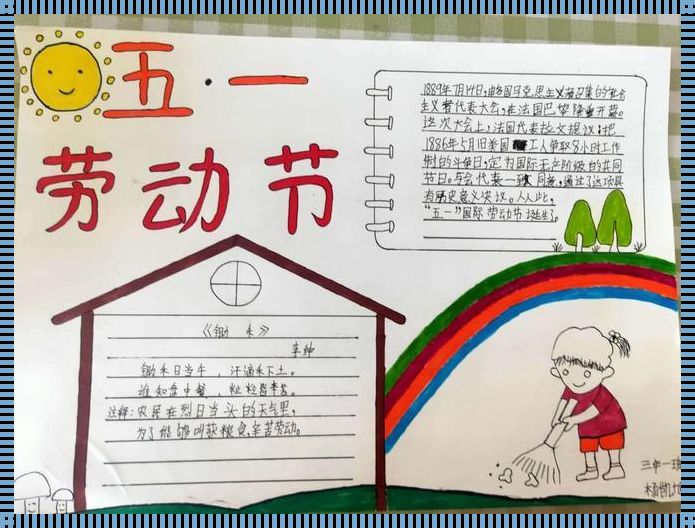 五·一
劳动节
1889年7月14日,由各国马克思主义者召集的社会
主义者代表大会,在法国巴黎隆重开幕。
这次大会上,法国代表拉文提议:把
1886年5月1日美国工人争取8小时工作
制的斗争日,定为国际无产阶级的共同
节日。与会代表一致同意,通过了这项具
有历史意义决议。从此,
“五一”国际劳动节诞生了。
《锄禾》
李绅
锄禾日当午,汗滴禾下土。
谁知盘中餐,粒粒皆辛苦。
注释:农民在烈日当头的天气里,
为了能够收获粮食,辛苦劳动。
三年一班